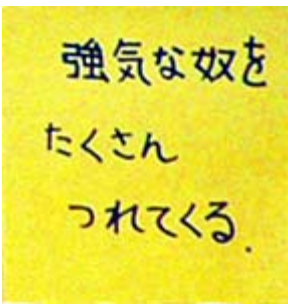 強気な奴を
たくさん
つれてくる.